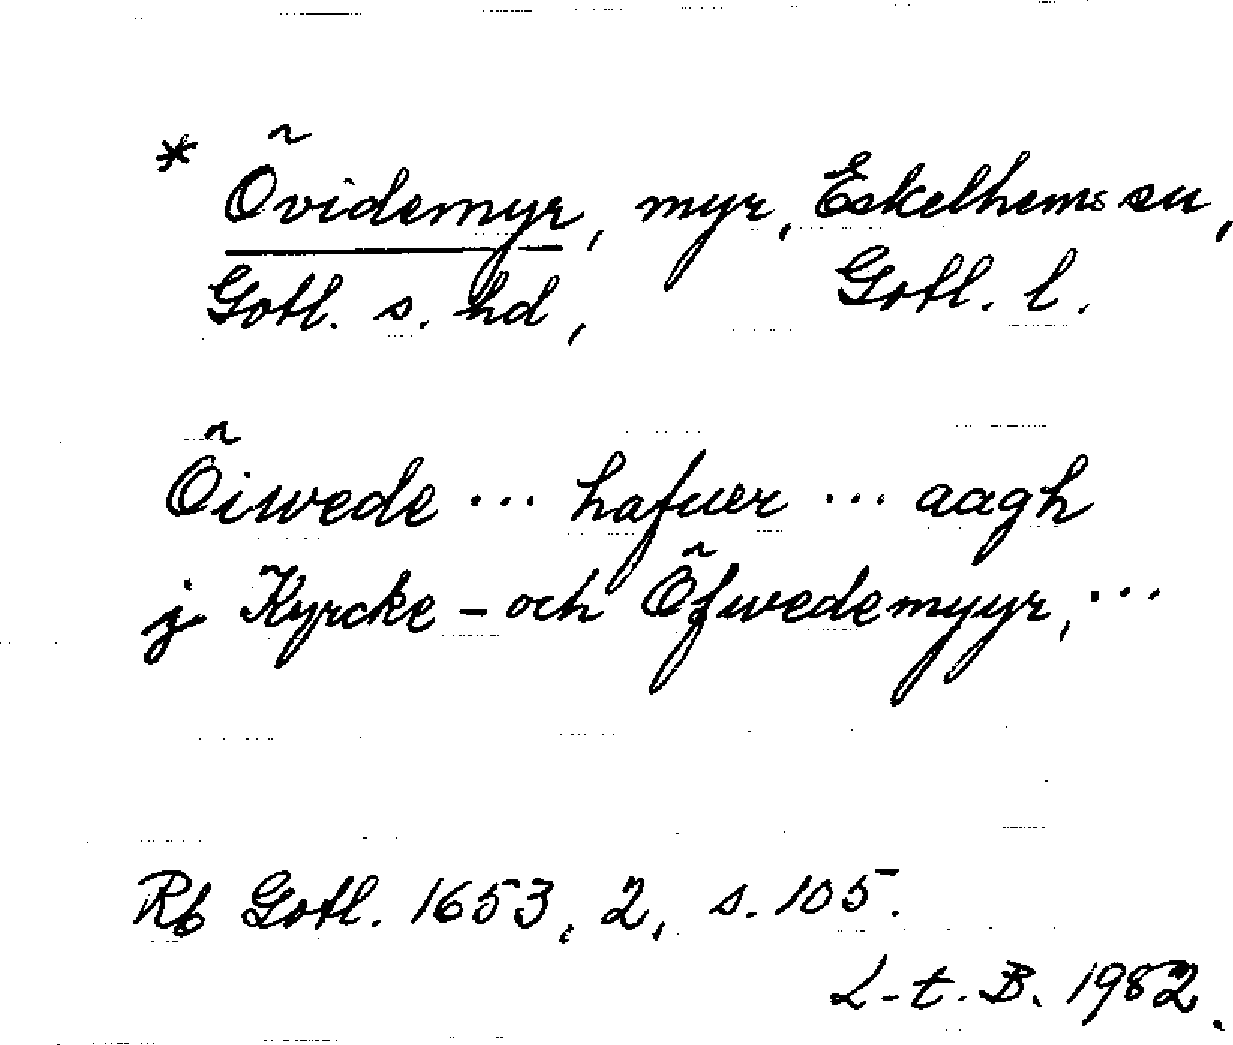 * Övidemyr, myr, Eskelhems sn,
Gotl. s. hd, Gotl. l.
Öiwede ... hafuer ... aagh
j Kyrcke- och Öfwedemyyr, ...
Rb Gotl. 1653, 2, s. 105.
L-t. B. 1982.